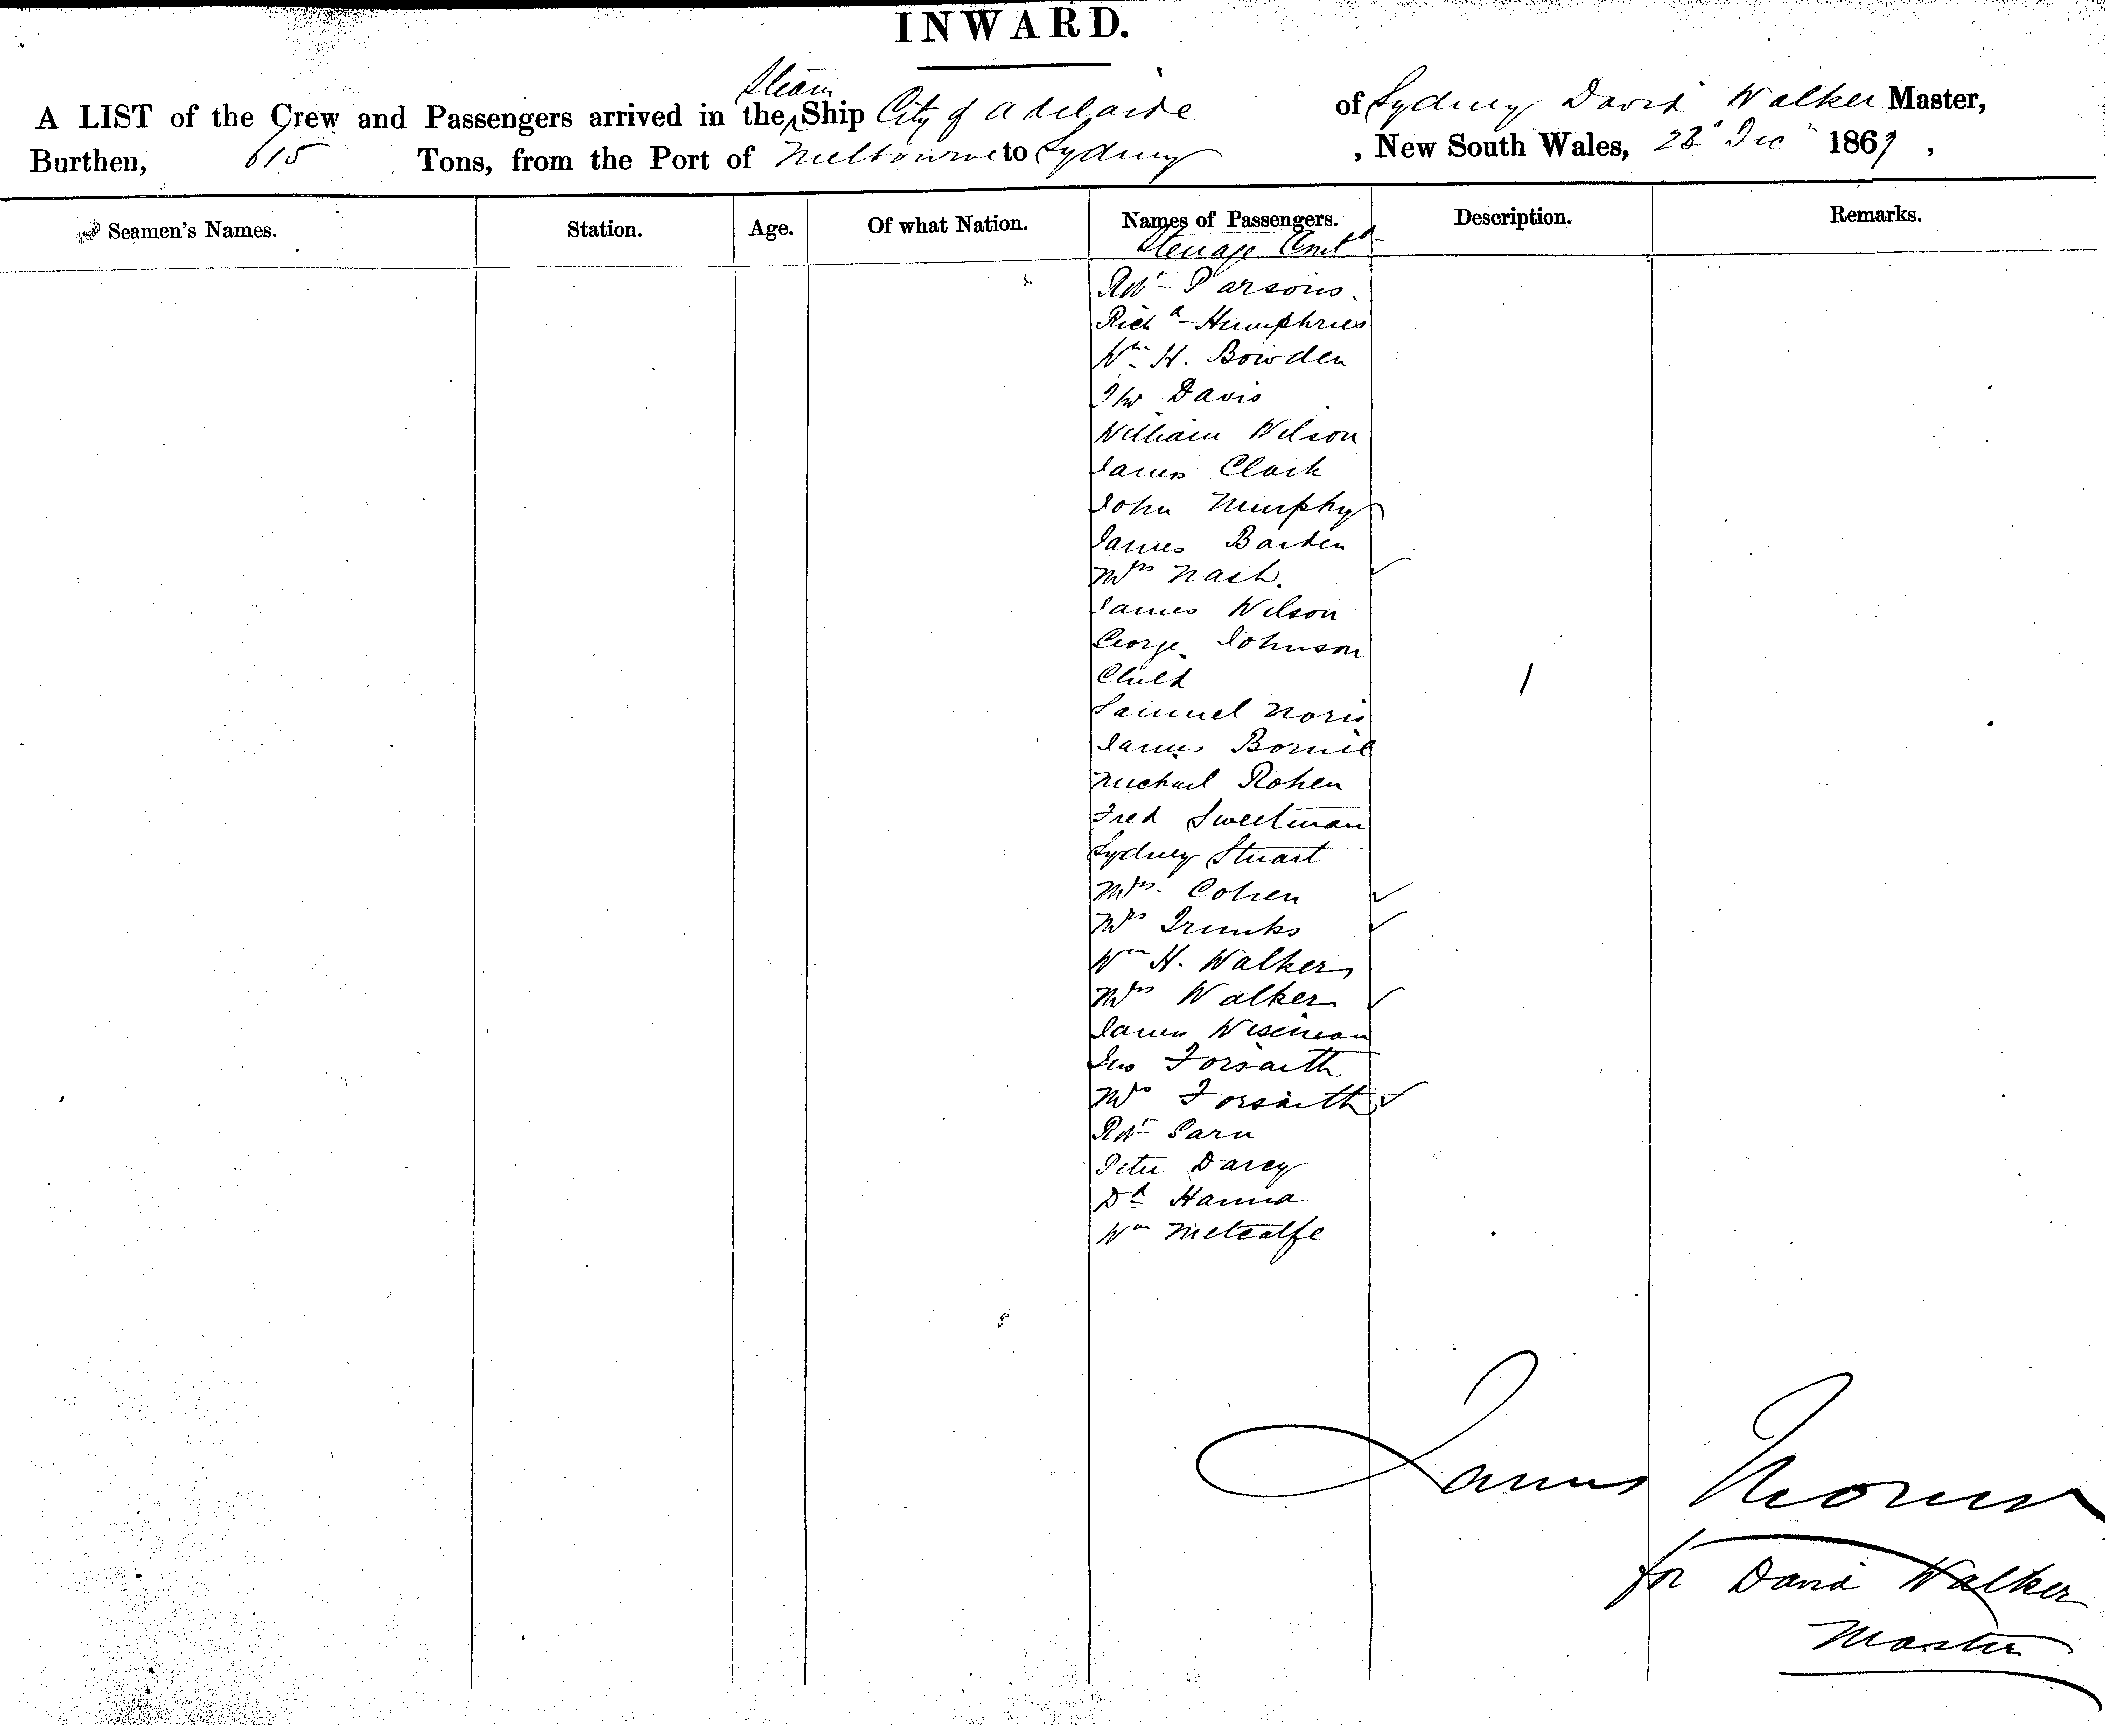 INWARD.
Steam
A LIST of the Crew and Passengers arrived in the Ship City of Adelaide of Sydney David Walker Master,
Burthen, 615 Tons, from the Port of Melbourne to Sydney , New South Wales, 28" Dec" 1869 ,
Seamen's Names. Station. Age. Of what Nation. Names of Passengers. Description. Remarks.
Steerage Contd
Robt Parsons.
Richd Humphries
Wm H. Bowden
Davis
William Wilson
James Clark
John Murphy
James Barden
Mrs Nash.
James Wilson
George Johnson
Child 1
Samuel Noris
James
Michael Rohen
Fred Sweetman
Sydney Stuart
Mrs. Cohen
Mrs Trunks
Wm H. Walker
Mrs Walker
James Wiseman
Jno Forsaith
Mrs Forsaith
Robt
Peter Darcy
Dd Hanna
Wm Metcalfe
James
for David Walker
Master